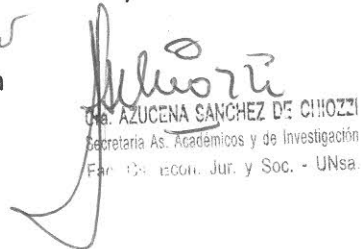 Cra. AZUCENA SANCHEZ DE CHIOZZI
Secretaria As. Académicos y de Investigación
Fac. Cs. Econ. Jur. y Soc. - UNSa.